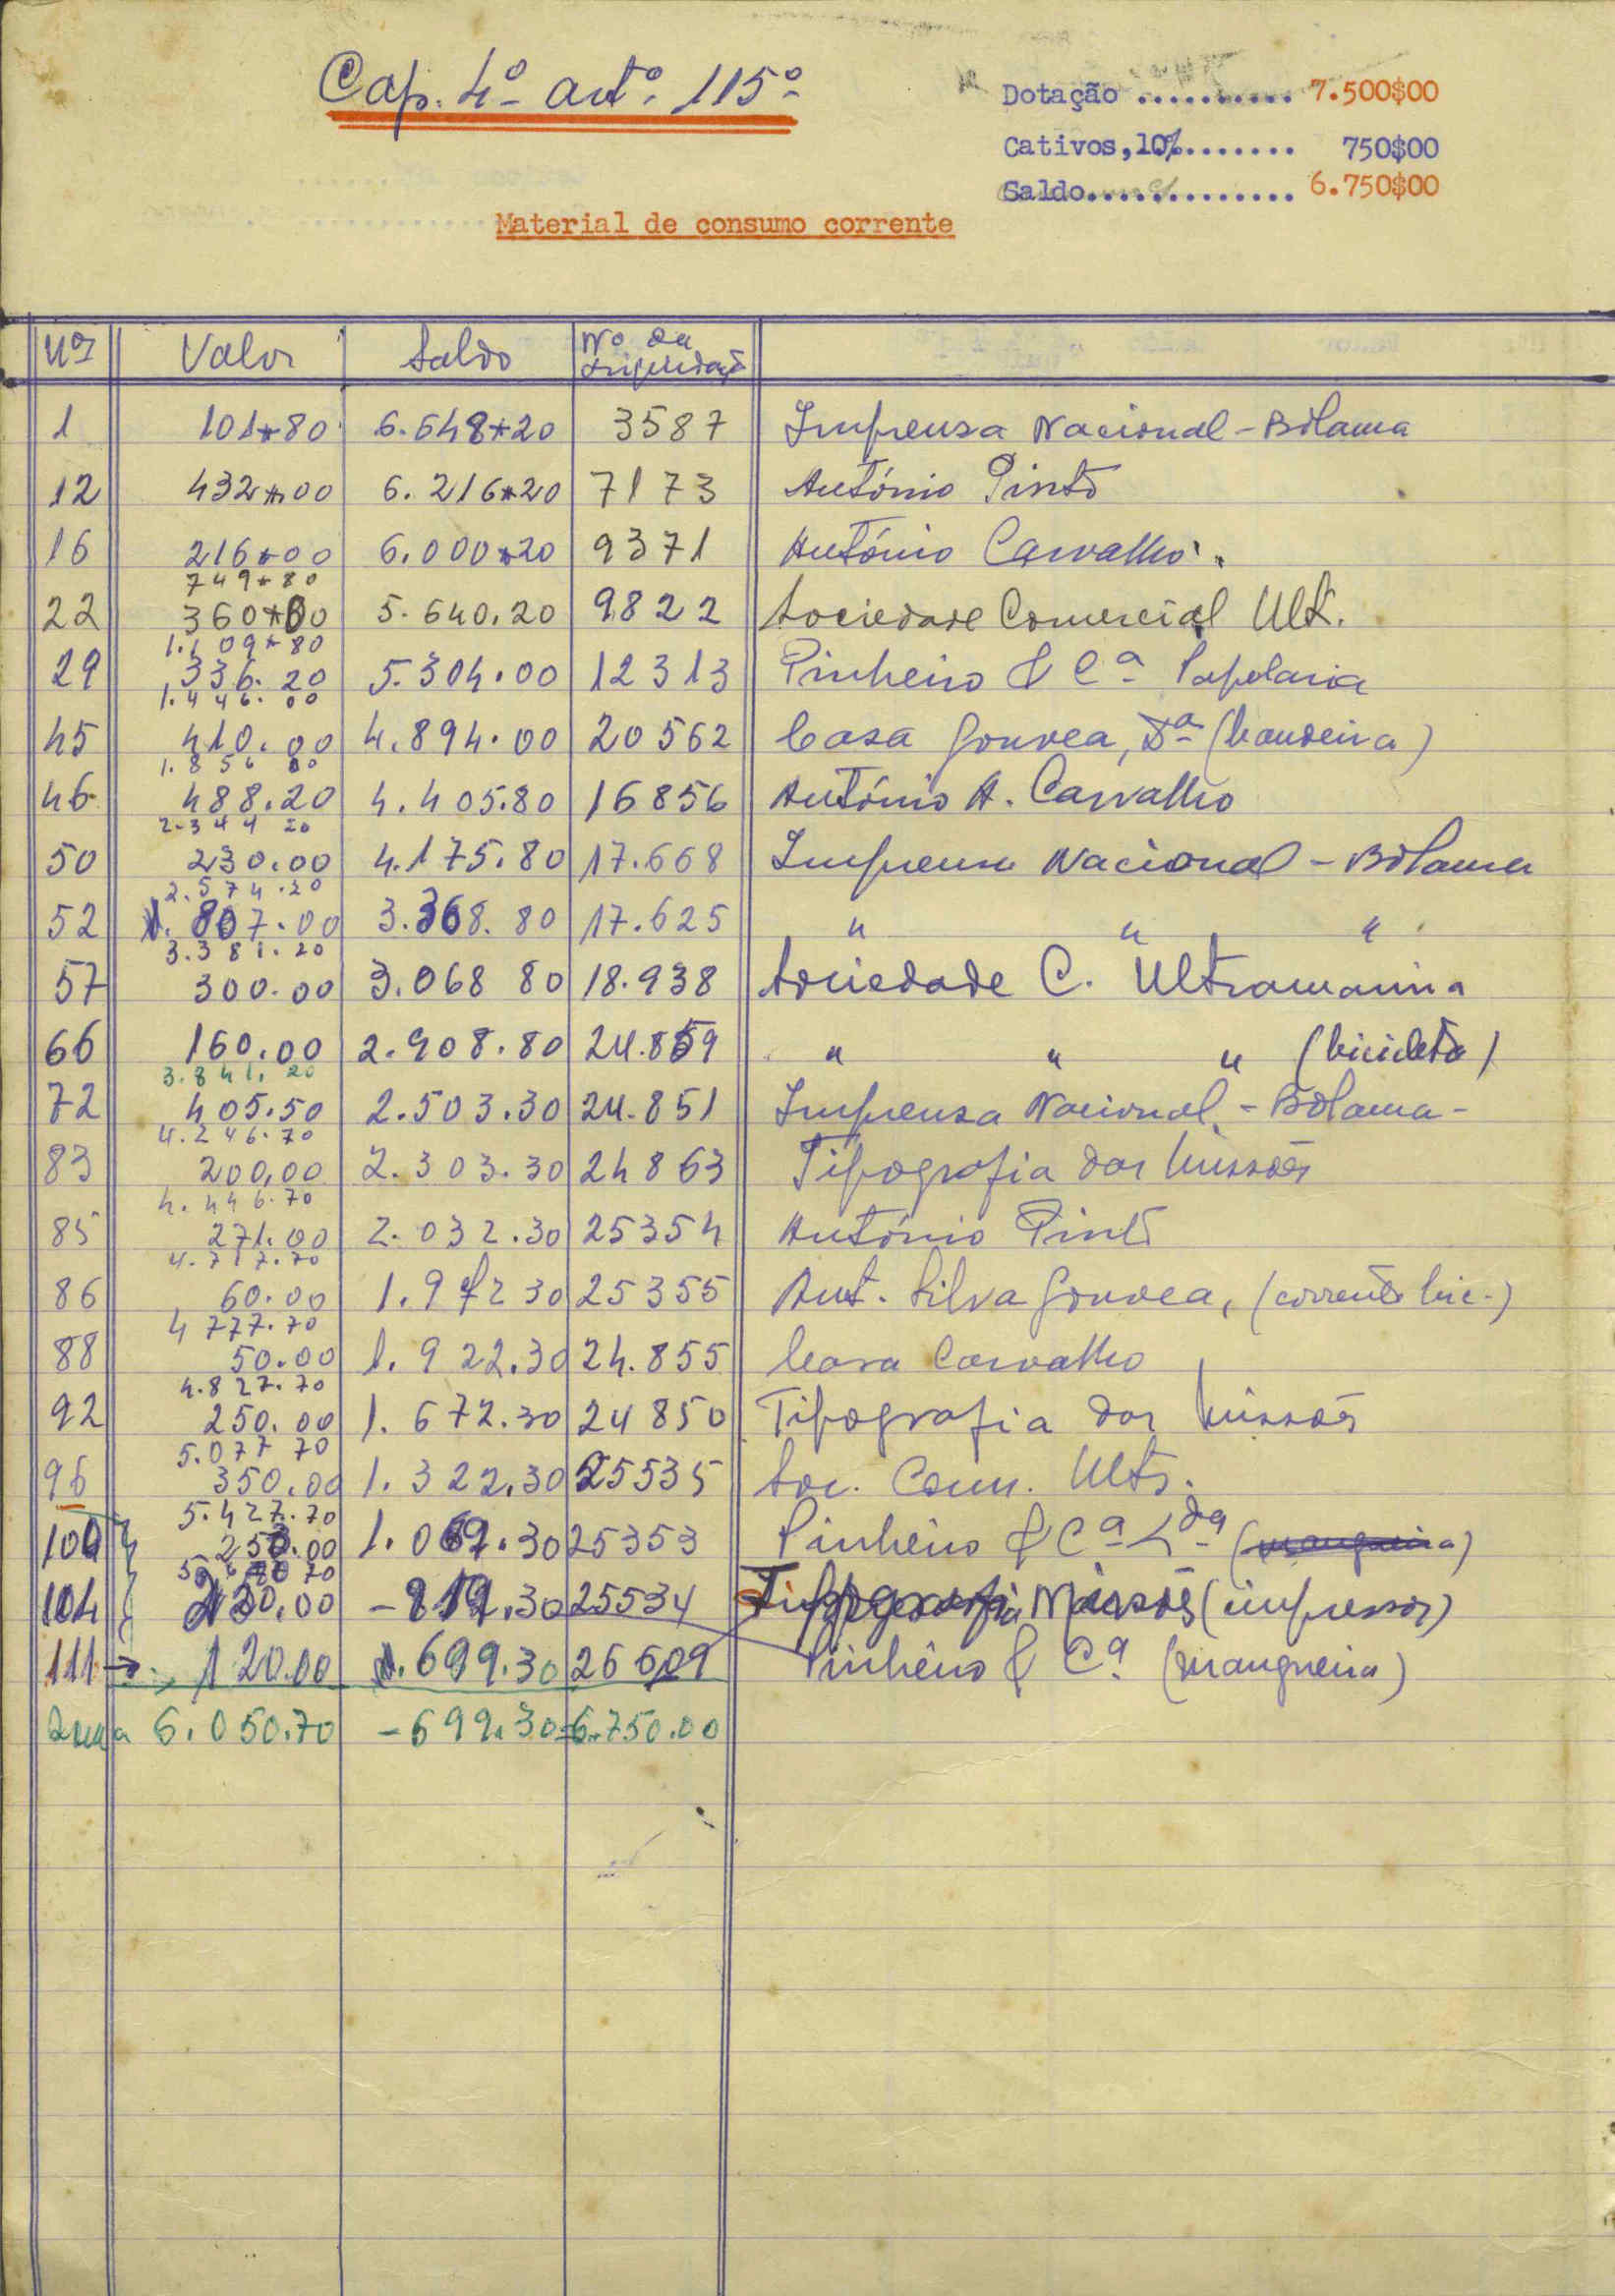 Cap. 4º artº. 115º
Dotação .......... 7.500$00
Cativos,10%....... 750$00
Saldo............. 6.750$00
Material de consumo corrente
Nos Valor Saldo Nº da Liquidação
1 101$80 6.648$20 3587 Imprensa Nacional - Bolama
12 432$00 6.216$20 7173 António Pinto
16 216$00 6.000$20 9371 António Carvalho
749$80
22 360$00 5.640.20 9822 Sociedade Comercial Ult.
1.109$80
29 336.20 5.304.00 12313 Pinheiro & Cª Papelaria
1.446.00
45 410.00 4.894.00 20562 Casa Gouvea, (bandeira)
1.856 00
46 488.20 4.405.80 16856 António A. Carvalho
2.344 20
50 230.00 4.175.80 17.668 Imprensa Nacional - Bolama
2.574.20
52 807.00 3.368.80 17.625 " " "
3.381.20
57 300.00 3.068 80 18.938 Sociedade C. Ultramarina
66 160.00 2.908.80 24.859 " " " (bicicleta)
3.841.20
72 405.50 2.503.30 24.851 Imprensa Nacional - Bolama -
4.246.70
83 200,00 2.303.30 24863 Tipografia das Missões
4.446.70
85 271.00 2.032.30 25354 António Pinto
4.717.70
86 60.00 1.972 30 25355 Ant. Silva Gouvea, (corrente bic.)
4 777.70
88 50.00 1.922.30 24.855 Casa Carvalho
4.827.70
92 250.00 1.672.30 24850 Tipografia das Missões
5.077 70
96 350.00 1.322.30 25535 Soc. Com. Ultr.
5.427.70
100 253.00 1.069.30 25353 Pinheiro & Cª Lda
104 .00 - 819.30 25534 Tipografia Missões (impressos)
111 → 120.00 699.30 26609 Pinheiro & Cª (mangueira)
Soma 6.050.70 - 699.30 = 6.750.00